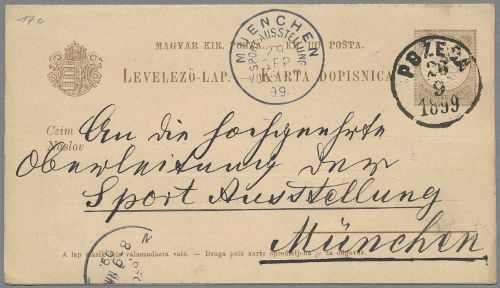 17c
MAGYAR KIR. POSTA. — KR. UG. POŠTA.
LEVELEZŐ-LAP. — KARTA DOPISNICA
MUENCHEN
SPORT AUSSTELLUNG
29
SEP
99.
POZEGA
26
9
1899
Czim
Naslov
An die hochgeehrte
Oberleitung der
Sport Ausstellung
München
A lap másik fele válaszadásra való. — Druga pola karte opredieljena je za odgovor.